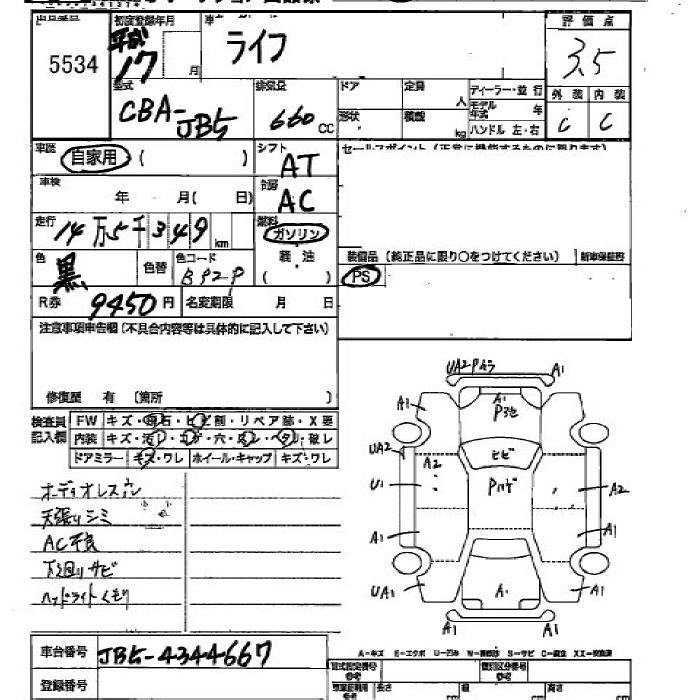 5534
初度登録年月
平成
17 月
ライフ
評価点
3.5
外装 内装
C C
型式
CBA-
JB5
排気量
660 cc
ドア
定員
人
形状
積載
kg
ディーラー・並行
モデル年式 年
ハンドル 左・右
車歴
自家用 ( )
シフト
AT
セールスポイント (正常に機能するものに限ります)
車検
年 月( 日)
AC
走行
14万5千349km
燃料
ガソリン
軽油
( )
色
黒
色替
色コード
B92P
装備品 (純正品に限り○をつけてください)
新車保証書
PS
R券
9450円
名変期限 月 日
注意事項申告欄(不具合内容等は具体的に記入して下さい)
修復歴 有 〔箇所 〕
検査員
記入欄
FW キズ・飛石・ヒビ割・リペア跡・X要
内装 キズ・汚レ・コゲ・穴・スレ・ヘタリ・破レ
ドアミラー キズ・ワレ ホイール・キャップ キズ・ワレ
オーディオレス
天張りシミ
AC不良
下廻りサビ
ヘッドライトくもり
UA2 A1
A1 A1 A1
UA2 A2 ヒビ
U1 Pハゲ A2
A1 A1
UA1 A A1
A1 A1
A=キズ E=エクボ U=凹み S=サビ
車台番号
JB5-4344667
登録番号
型式指定番号
類別区分番号
長さ cm
幅 cm
高さ cm